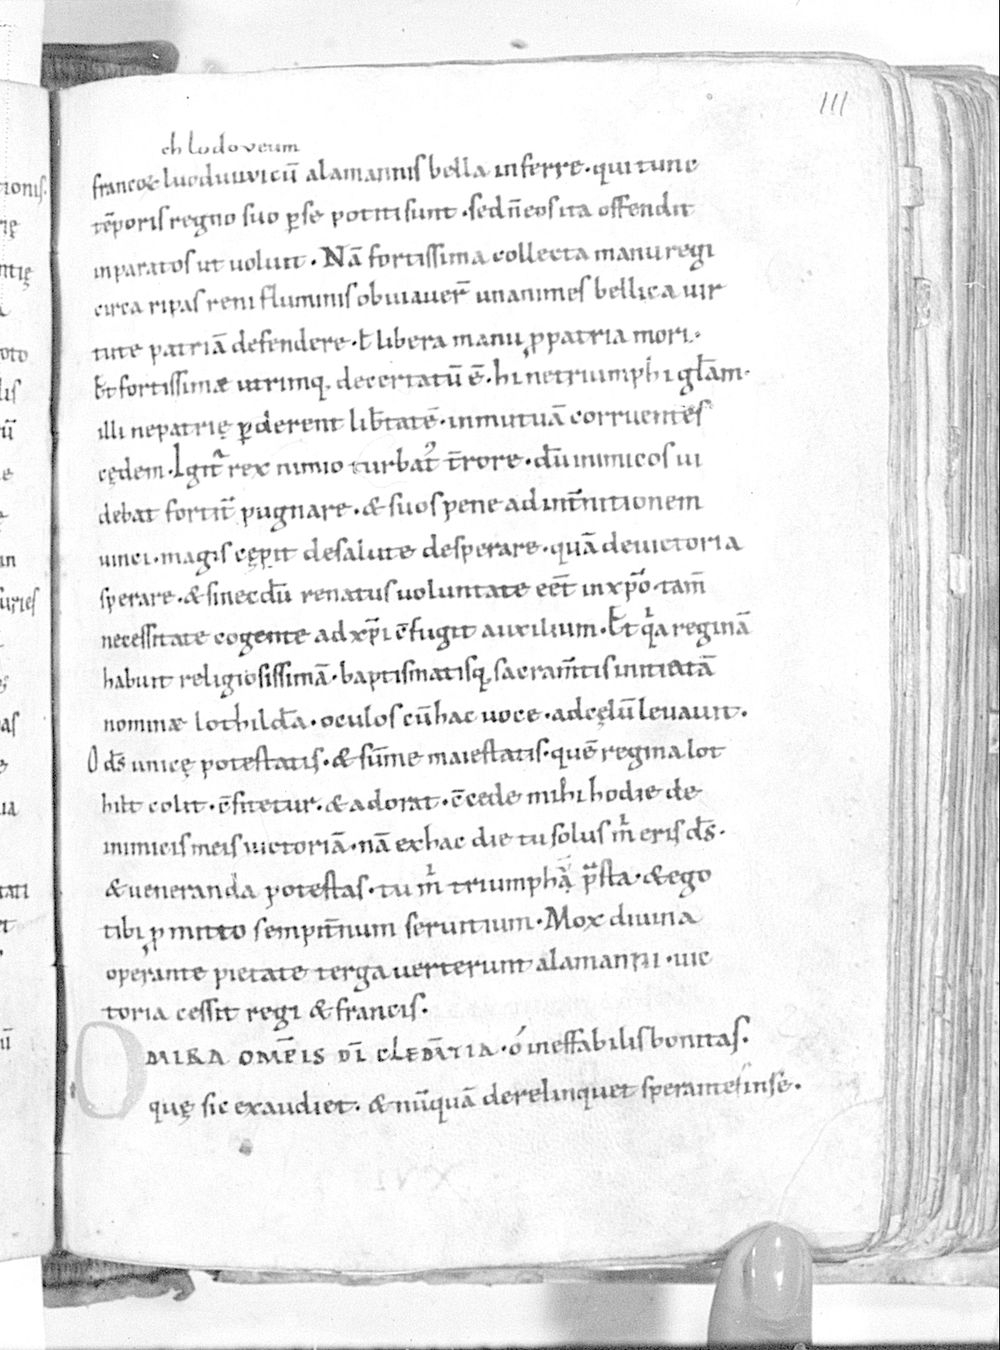 111
chlodoveum
francoꝝ luoduuuicū alamannis bella inferre · qui tunc
tēporis regno suo ꝑ se potiti sunt · sed n̄ eos ita offendit
inparatos ut uoluit · Nā fortissima collecta manu regi
circa ripas reni fluminis obuiauer̄ unanimes bellica uir
tute patriā defendere · t̄ libera manu ꝓ patria mori ·
Et fortissimæ utrimq; decertatū ē · hi ne triumphi gl̄am ·
illi ne patrię ꝑderent lib̄tatē · in mutuā corruentes
cędem · Igit̄ rex nimio turbat᷒ t̄rore · dū inimicos ui
debat fortit̄ pugnare · & suos pene ad int̄nitionem
uinci · magis cępit de salute desperare · quā de uictoria
sperare · & si nec dū renatus uoluntate eēt in xp̄o · tam̄
necessitate cogente ad xp̄i c̄fugit auxilium · Et q̄a reginā
habuit religiosissimā · baptismatisq; sacram̄tis initiatā
nominæ lothild̄a · oculos cū hac uoce · ad cęlū leuauit ·
O ds̄ unicę potestatis · & sūme maiestatis · quē regina lot
hilt colit · c̄fitetur · & adorat · c̄cede mihi hodie de
inimicis meis uictoriā · nā ex hac die tu solus m̄ eris ds̄ ·
& ueneranda potestas · tu m̄ triumphā p̄sta · & ego
tibi ꝓmitto sempit̄num seruitium · Mox diuina
operante pietate terga uerterunt alamanni · uic
toria cessit regi & francis ·
O MIRA OMP̄EIS DĪ CLEM̄TIA · ó ineffabilis bonitas ·
quę sic exaudiet · & nūquā derelinquet sperantes in se ·